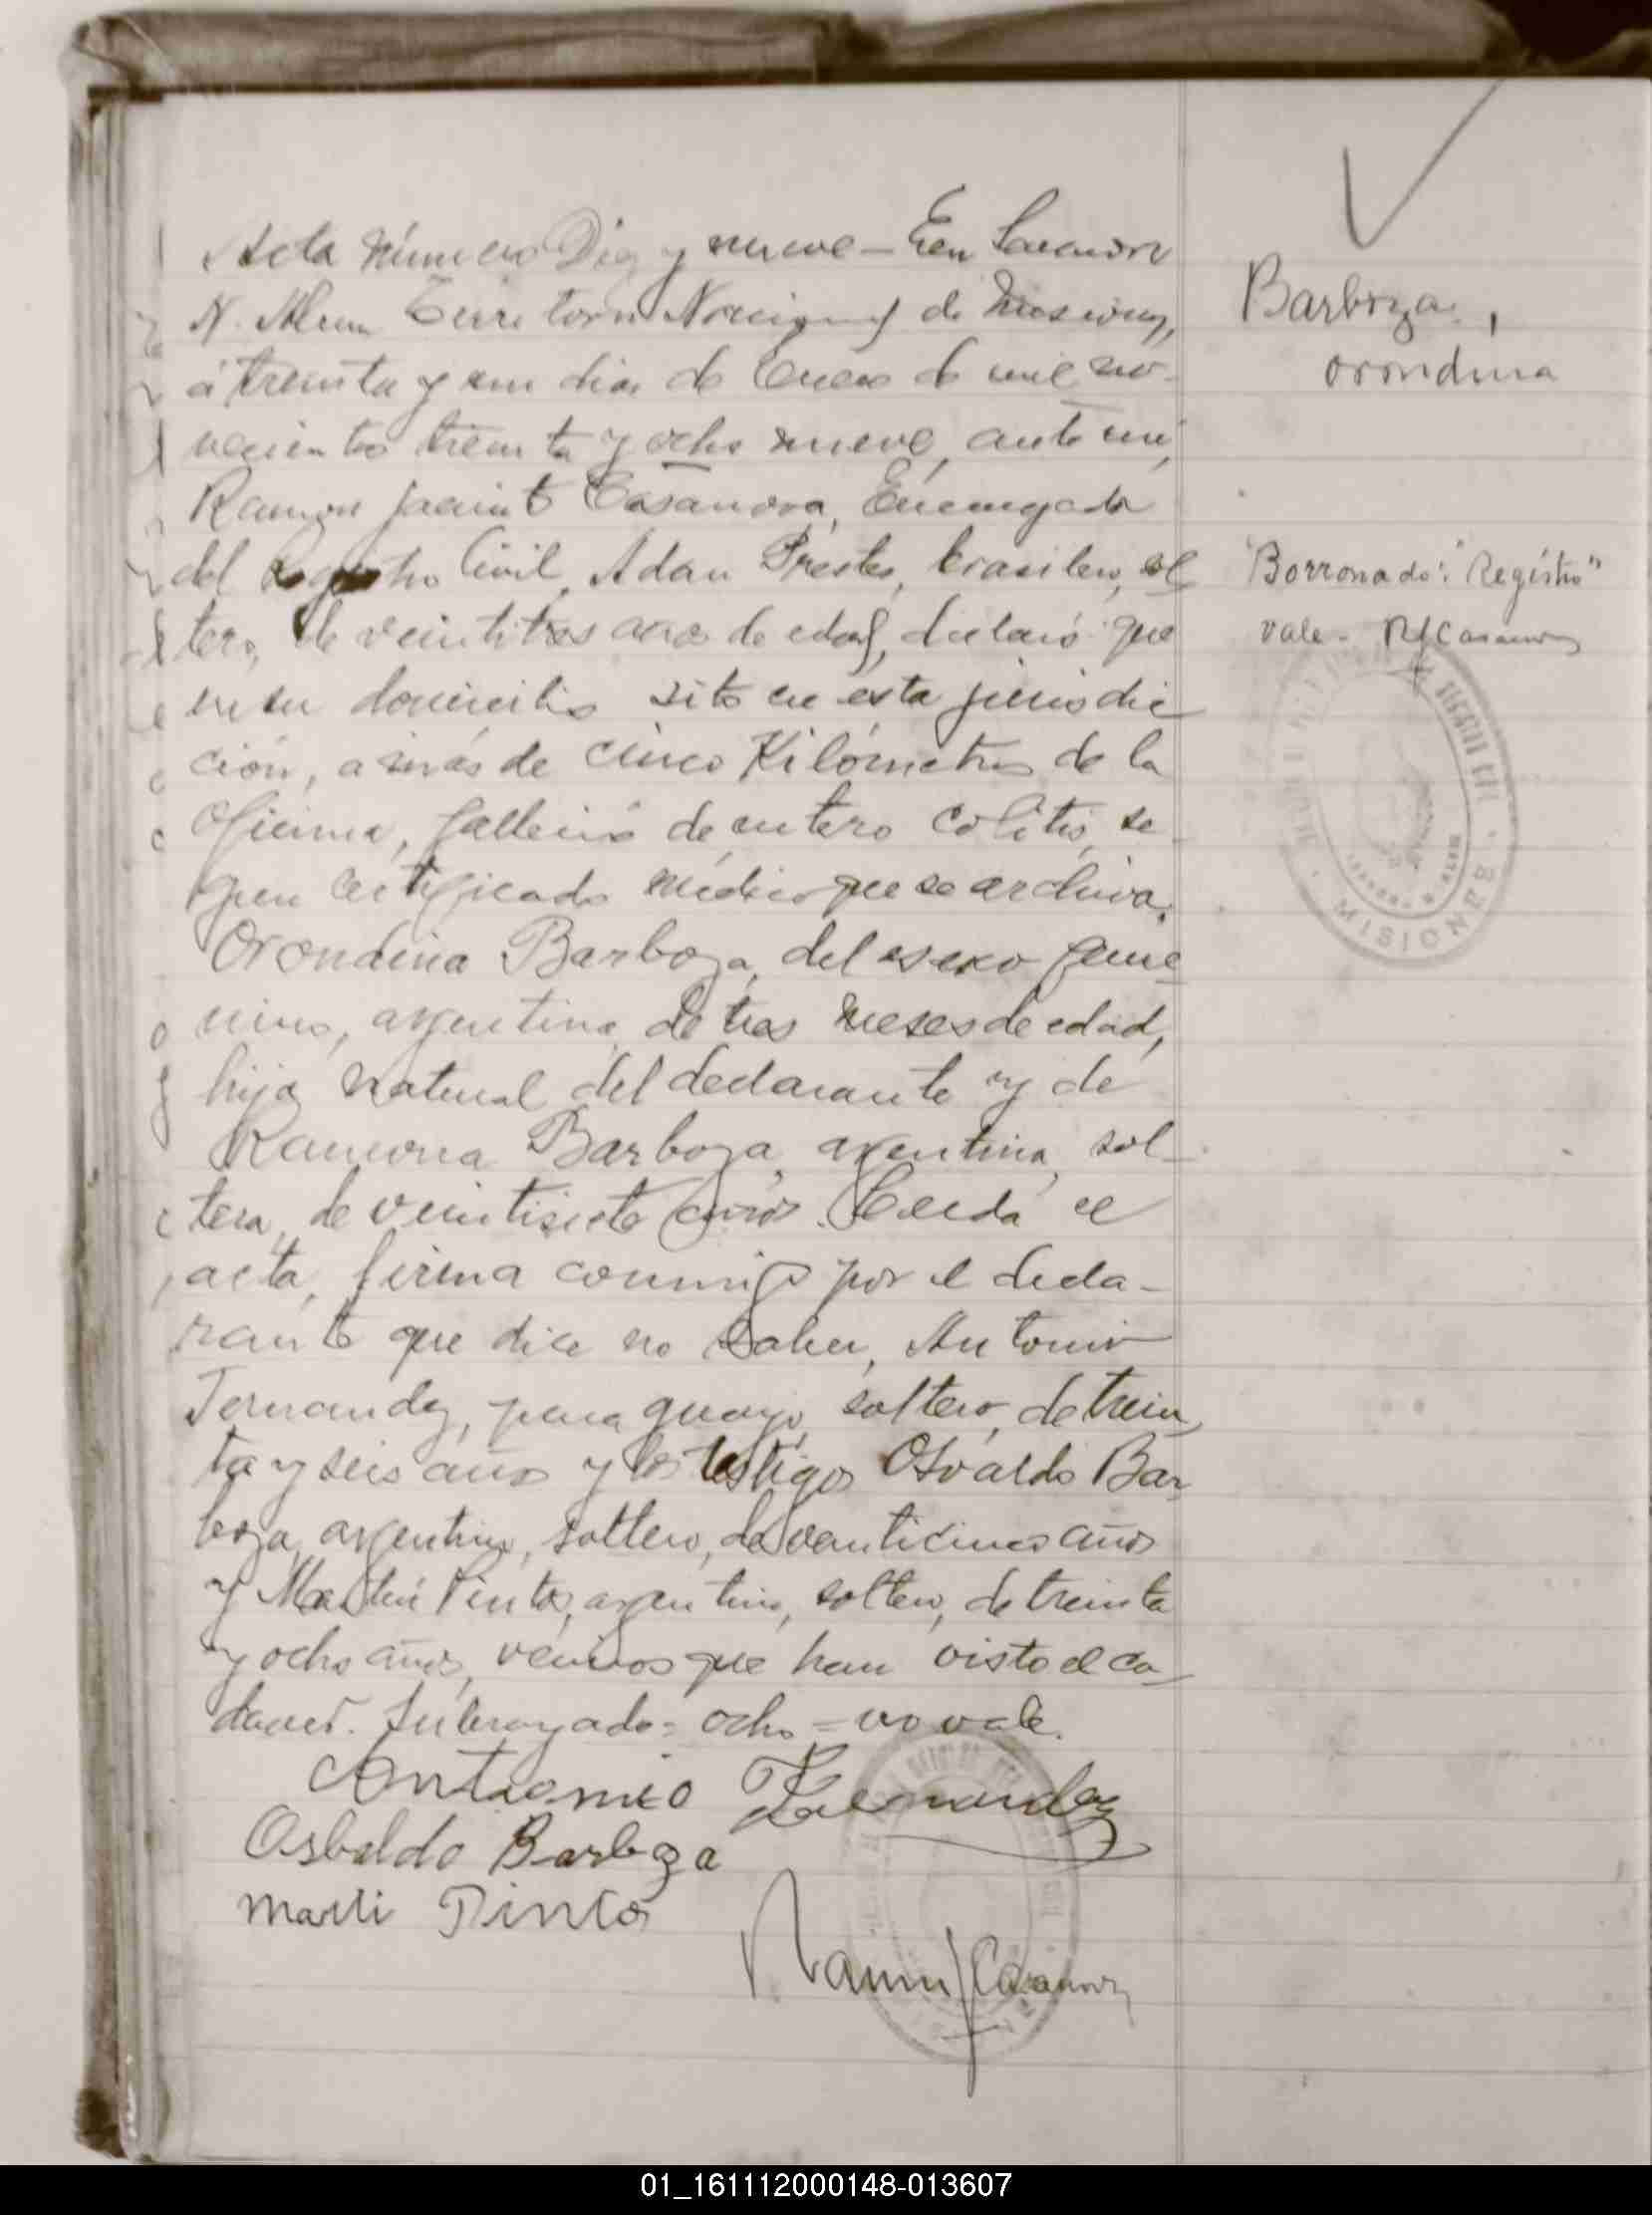 Acta Número Diez y nueve – En Leandro
N. Alem Territorio Nacional de Misiones,
á treinta y un dias de Enero de mil no-
vecientos treinta y ocho nueve, ante mi,
Ramon Jacinto Casanova, Encargado
del Registro Civil, Adan Prestes, brasilero, sol
tero, de veintitres años de edad, declaró que
en su domicilio sito en esta jurisdic
ción, a más de cinco Kilómetros de la
Oficina, falleció de entero colitis, se-
gun certificado médico que se archiva,
Orondina Barboza, del sexo feme
nino, argentina, de tres meses de edad,
hija natural del declarante y de
Ramona Barboza, argentina, sol-
tera, de veintisiete años. Leida el
acta, firma conmigo por el decla-
rante que dice no saber, Antonio
Fernandez, paraguayo, soltero, de trein
ta y seis años y los testigos Osvaldo Bar
boza, argentino, soltero, de veinticinco años
y Martin Pinto, argentino, soltero, de treinta
y ocho años, vecinos que han visto el ca-
daver. Subrayado = ocho = no vale.
Antonio Fernandez
Osbaldo Barboza
Marti Pinto
Ramon J Casanova
Barboza,
Orondina
"Borronado": "Registro"
vale - RJCasanova
MISIONES
01_161112000148-013607